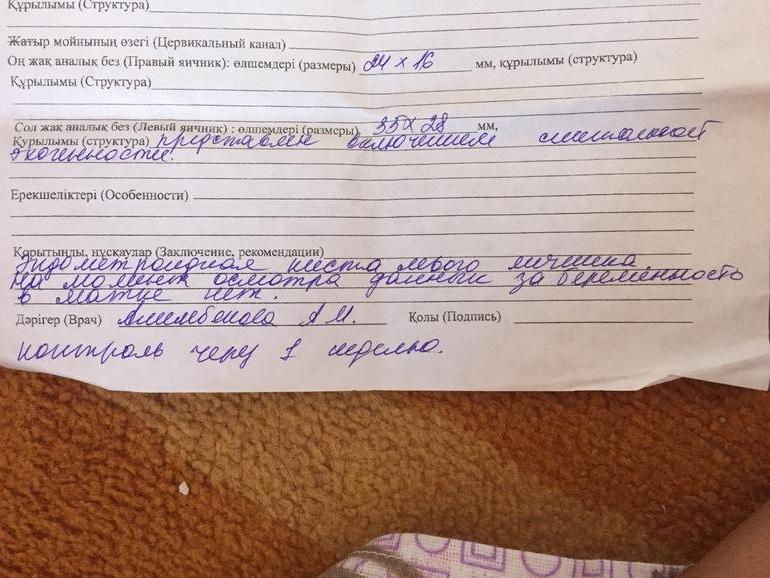 Құрылымы (Структура)
Жатыр мойнының өзегі (Цервикальный канал)
Оң жақ аналық без (Правый яичник): өлшемдері (размеры) 24 х 16 мм, құрылымы (структура)
Құрылымы (Структура)
Сол жақ аналық без (Левый яичник) : өлшемдері (размеры) 35 х 28 мм,
Құрылымы (структура) представлен включением смешанной
экогенности.
Ерекшеліктері (Особенности)
Қорытынды, нұсқаулар (Заключение, рекомендации)
Эндометриоидная киста левого яичника.
На момент осмотра данных за беременность
в матке нет.
Дәрігер (Врач) Алимбекова А М. Қолы (Подпись)
контроль через 1 неделю.